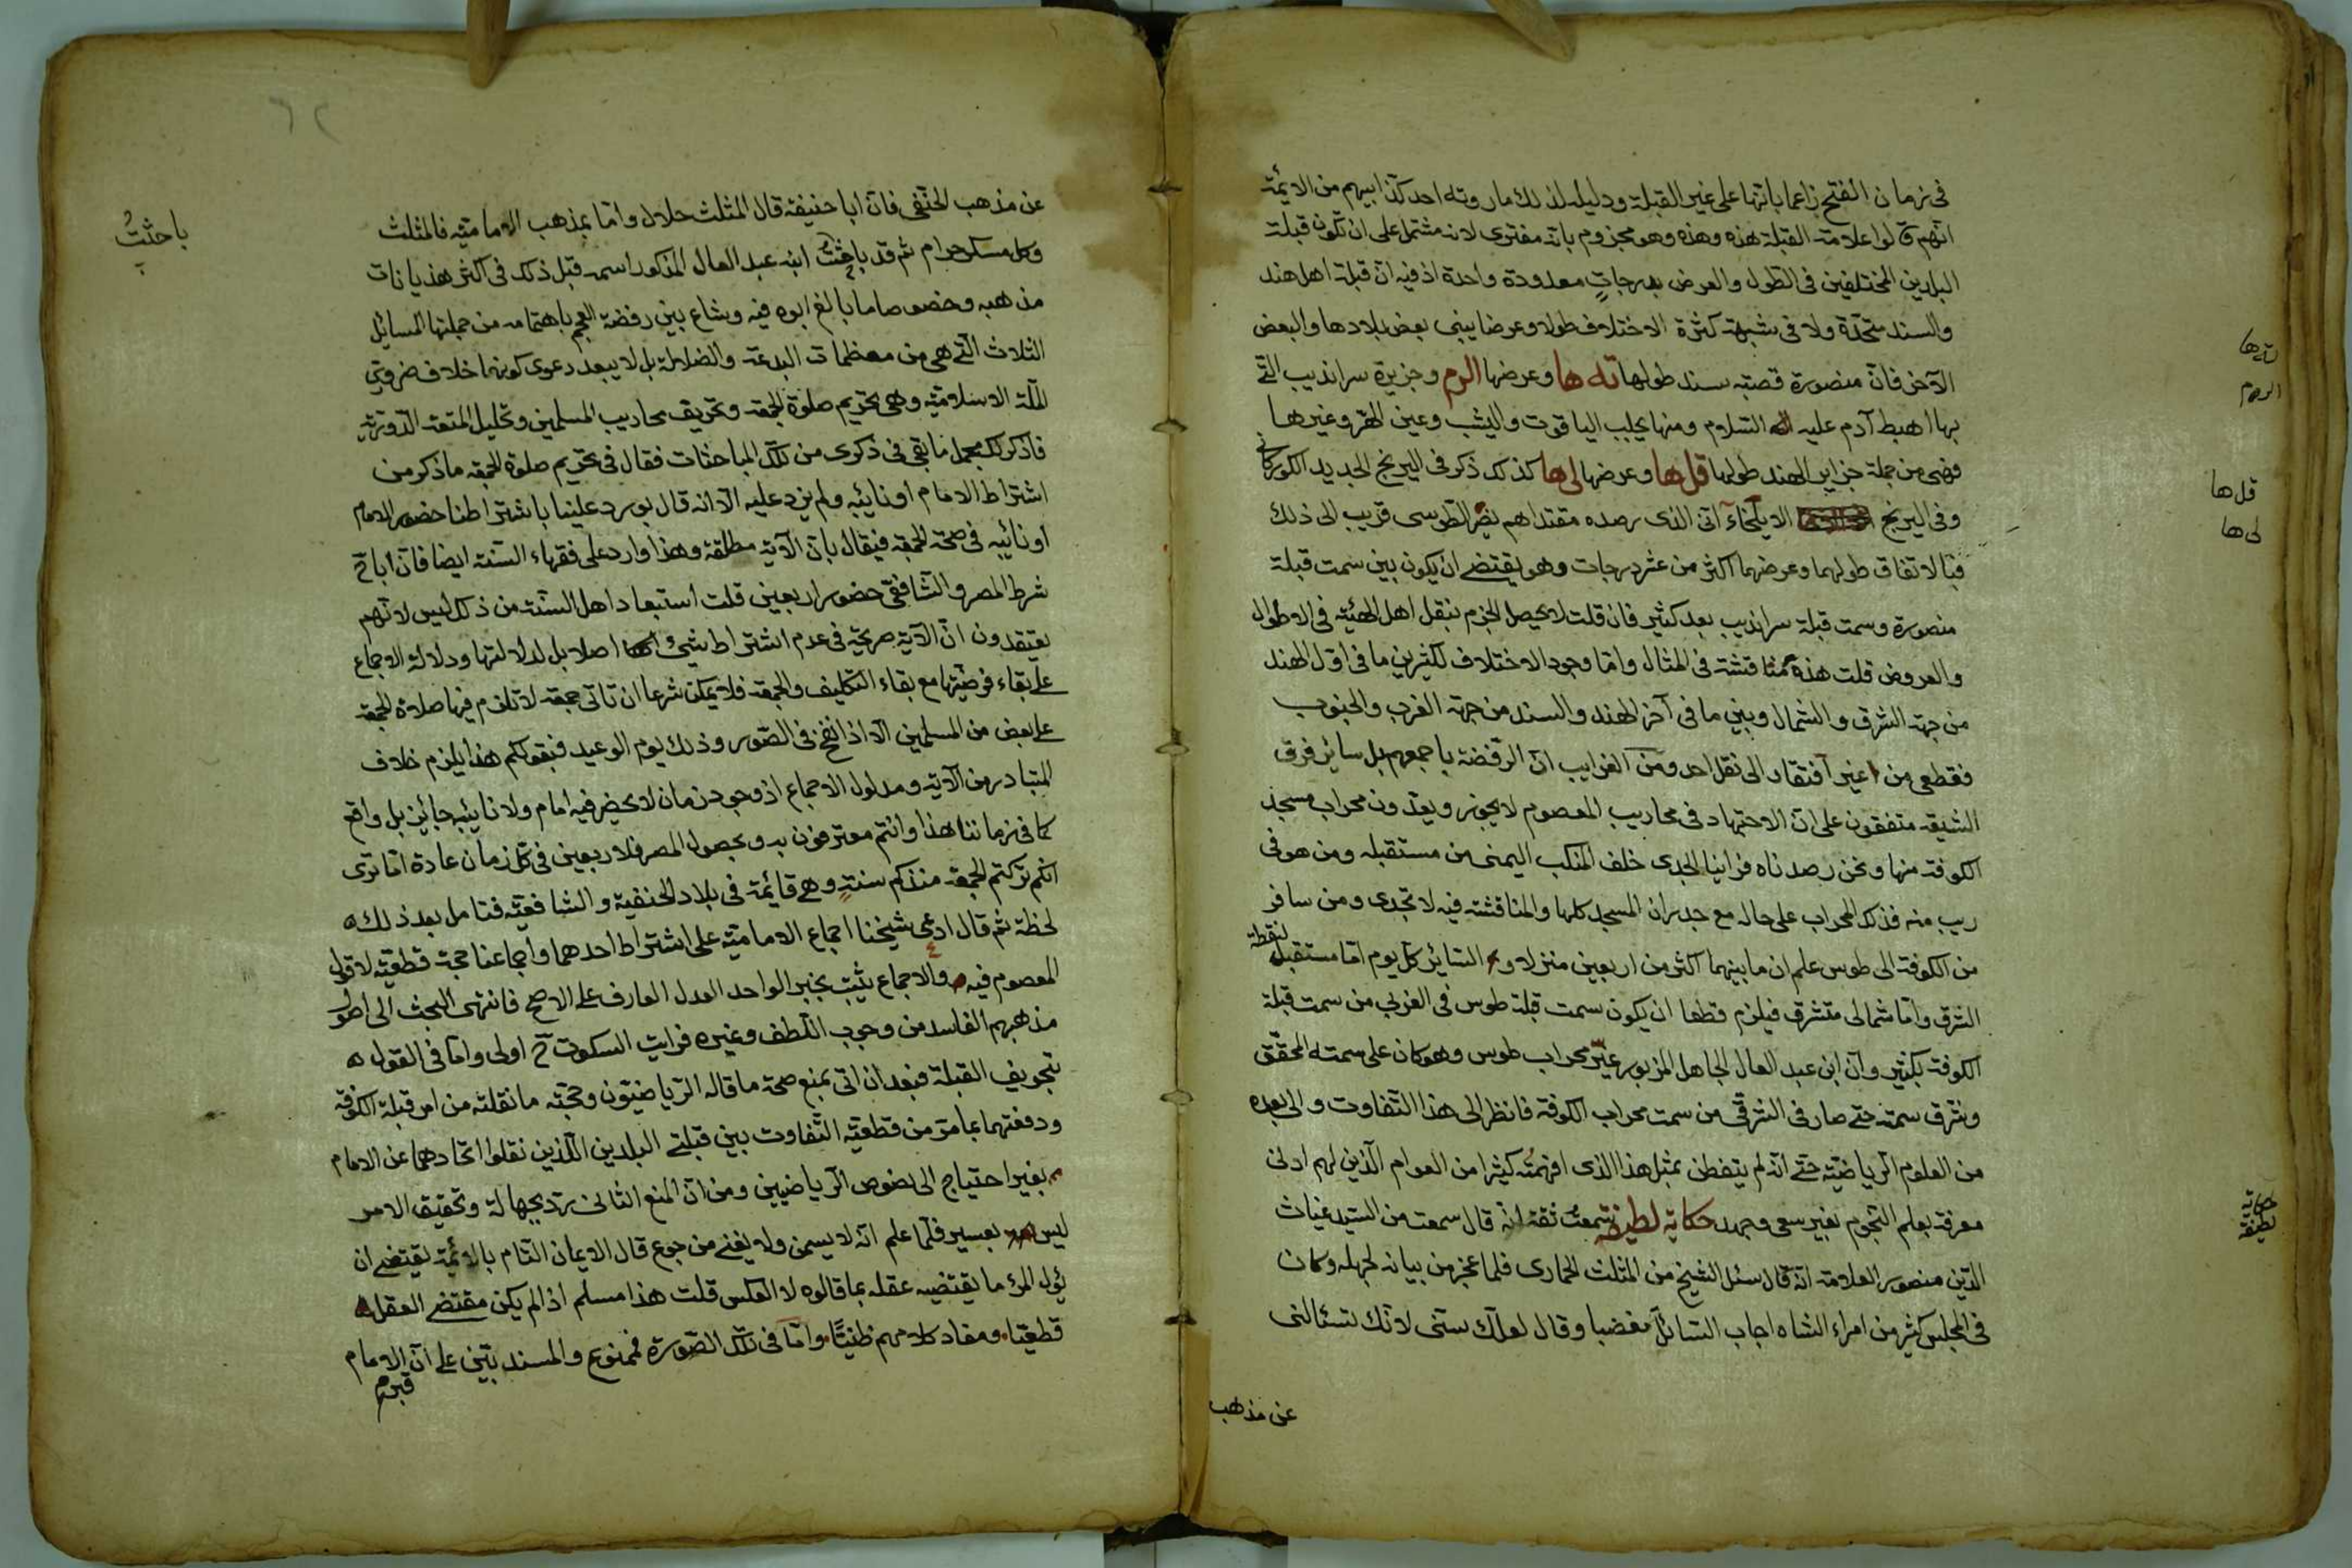 في زمان الفتح زاعما بانها على غير القبلة ودليله لذلك ما روته احد كذابيهم من الايمة
انهم قالوا علامة القبلة هذه وهذه وهو مجزوم بانه مفترى لانه مشتمل على ان تكون قبلة
البلدين المختلفين في الطول والعرض بدرجات معدودة واحدة اذ فيه ان قبلة اهل هند
والسند متحدة ولا في شبهة كثرة الاختلاف طولا وعرضا بين بعض بلادها والبعض
الآخر فان منصورة قصبه سند طولها ته ها وعرضها الرم وجزيرة سرانديب التي
بها اهبط آدم عليه السلام ومنها يجلب الياقوت واليشب وعين الهر وغيرها
فهي من جملة جزاير الهند طولها قل ها وعرضها لي ها كذلك ذكر في الزيج الجديد الكوركاني
وفي الزيج الايلخاني الذي رصده مقتداهم نصر الطوسي قريب الى ذلك
فبالاتفاق طولهما وعرضهما اكثر من عشر درجات وهو يقتضي ان يكون بين سمت قبلة
منصورة وسمت قبلة سرانديب بعد كثير فان قلت لا يحصل الجزم بنقل اهل الهيئة في الاطوال
والعروض قلت هذه مناقشة في المثال واما وجود الاختلاف لكثير بين ما في اول الهند
من جهة الشرق والشمال وبين ما في آخر الهند والسند من جهة الغرب والجنوب
فقطعي من غير افتقار الى نقل احد ومن الغرايب ان الرفضة باجمعهم بل ساير فرق
الشيعة متفقون على ان الاجتهاد في محاريب المعصوم لا يجوز ويعدون محراب مسجد
الكوفة منها ونحن رصدناه فراينا الجدي خلف المنكب اليمنى من مستقبله ومن هو في
ريب منه فذلك المحراب على حاله مع جدران المسجد كلها والمناقشة فيه لا تجدي ومن سافر
من الكوفة الى طوس علم ان ما بينهما اكثر من اربعين منزلا و الساير كل يوم اما مستقبل لنقطة
الشرق واما شمالي متشرق فيلزم قطعا ان يكون سمت قبلة طوس في الغربي من سمت قبلة
الكوفة بكثير وان ابن عبد العال الجاهل المزبور غير محراب طوس وهو كان على سمته المحقق
وشرق سمته حتى صار في الشرقي من سمت محراب الكوفة فانظر الى هذا التفاوت والى بعده
من العلوم الرياضية حتى انه لم يتفطن بمثل هذا الذي افهمته كثيرا من العوام الذين لهم ادنى
معرفة بعلم النجوم بغير سعي وجهد حكاية لطيفة سمعت ثقة انه قال سمعت من السيد غياث
الدين منصور العلامة انه قال سئل الشيخ من المثلث الحماري فلما عجز من بيانه لجهله وكان
في المجلس كثير من امراء الشاه اجاب السائل مغضبا وقال لعلك سني لانك تسئالني
عن مذهب
ته ها
الرم
قل ها
لي ها
حكاية
لطيفة
عن مذهب الحنفي فان ابا حنيفة قال المثلث حلال واما بمذهب الامامية فالمثلث
وكل مسكر حرام ثم قد باحثت ابنه عبد العال المذكور اسمه قبل ذلك في اكثر هذيانات
مذهبه وخصوصا ما بالغ ابوه فيه وشاع بين رفضة العجم باهتمامه من جملتها المسائل
الثلاث التي هي من معظمات البدعة والضلالة بل لا يبعد دعوى كونها خلاف ضروري
الملة الاسلامية وهي تحريم صلوة الجمعة وتحريف محاريب المسلمين وتحليل المتعة الدورية
فاذكر لك مجمل ما بقي في ذكرى من تلك المباحثات فقال في تحريم صلوة الجمعة ما ذكر من
اشتراط الامام او نائبه ولم يزد عليه الا انه قال يورد علينا باشتراطنا حضور الامام
او نائبه في صحة الجمعة فيقال بان الآية مطلقة وهذا وارد على فقهاء السنة ايضا فان ابا ح
شرط المصر والشافعي حضور اربعين قلت استبعاد اهل السنة من ذلك ليس لانهم
يعتقدون ان الآية صريحة في عدم اشتراط شيئ اصلا بل لدلالتها ودلالة الاجماع
على بقاء فرضيتها مع بقاء التكليف والجمعة فلا يمكن شرعا ان تاتي جمعة لا تلزم فيها صلاة الجمعة
على بعض من المسلمين الا اذا نفخ في الصور وذلك يوم الوعيد فبقولكم هذا يلزم خلاف
المتبادر من الآية ومدلول الاجماع اذ وجود زمان لا يحضر فيه امام ولا نائبه جائز بل واقع
كما في زماننا هذا وانتم معترفون به وبحصول المصر فلاربعين في كل زمان عادة اما ترى
انكم تركتم الجمعة منذ كم سنة وهي قائمة في بلاد الحنفية والشافعية فتامل بعد ذلك
لحظة ثم قال ادعى شيخنا اجماع الامامية على اشتراط احدهما واجماعنا حجة قطعية لا قول
المعصوم فيه والاجماع يثبت بخبر الواحد العدل العارف على الاصح فانتهى البحث الى اصول
مذهبهم الفاسد من وجوب اللطف وغيره فرايت السكوت ح اولى واما في القول
بتجويف القبلة فبعد ان اتى بمنع صحة ما قاله الرياضيون وحجته ما نقلته من امر قبلة الكوفة
ودفعتهما بما مر من قطعية التفاوت بين قبلتي البلدين اللذين نقلوا اتحادهما عن الامام
بغير احتياج الى نصوص الرياضيين ومن ان المنع الثاني ترديجهالة وتحقيق الامر
ليس بعسير فلما علم انه لا يسمن ولا يغني من جوع قال الايمان التام بالائمة يقتضي ان
يئول المرء ما يقتضيه عقله بما قالوه لا العكس قلت هذا مسلم اذا لم يكن مقتضى العقل
قطعيا ومفاد كلامهم ظنيا واما في تلك الصورة فممنوع والمسند بين على ان الامام
باحثت